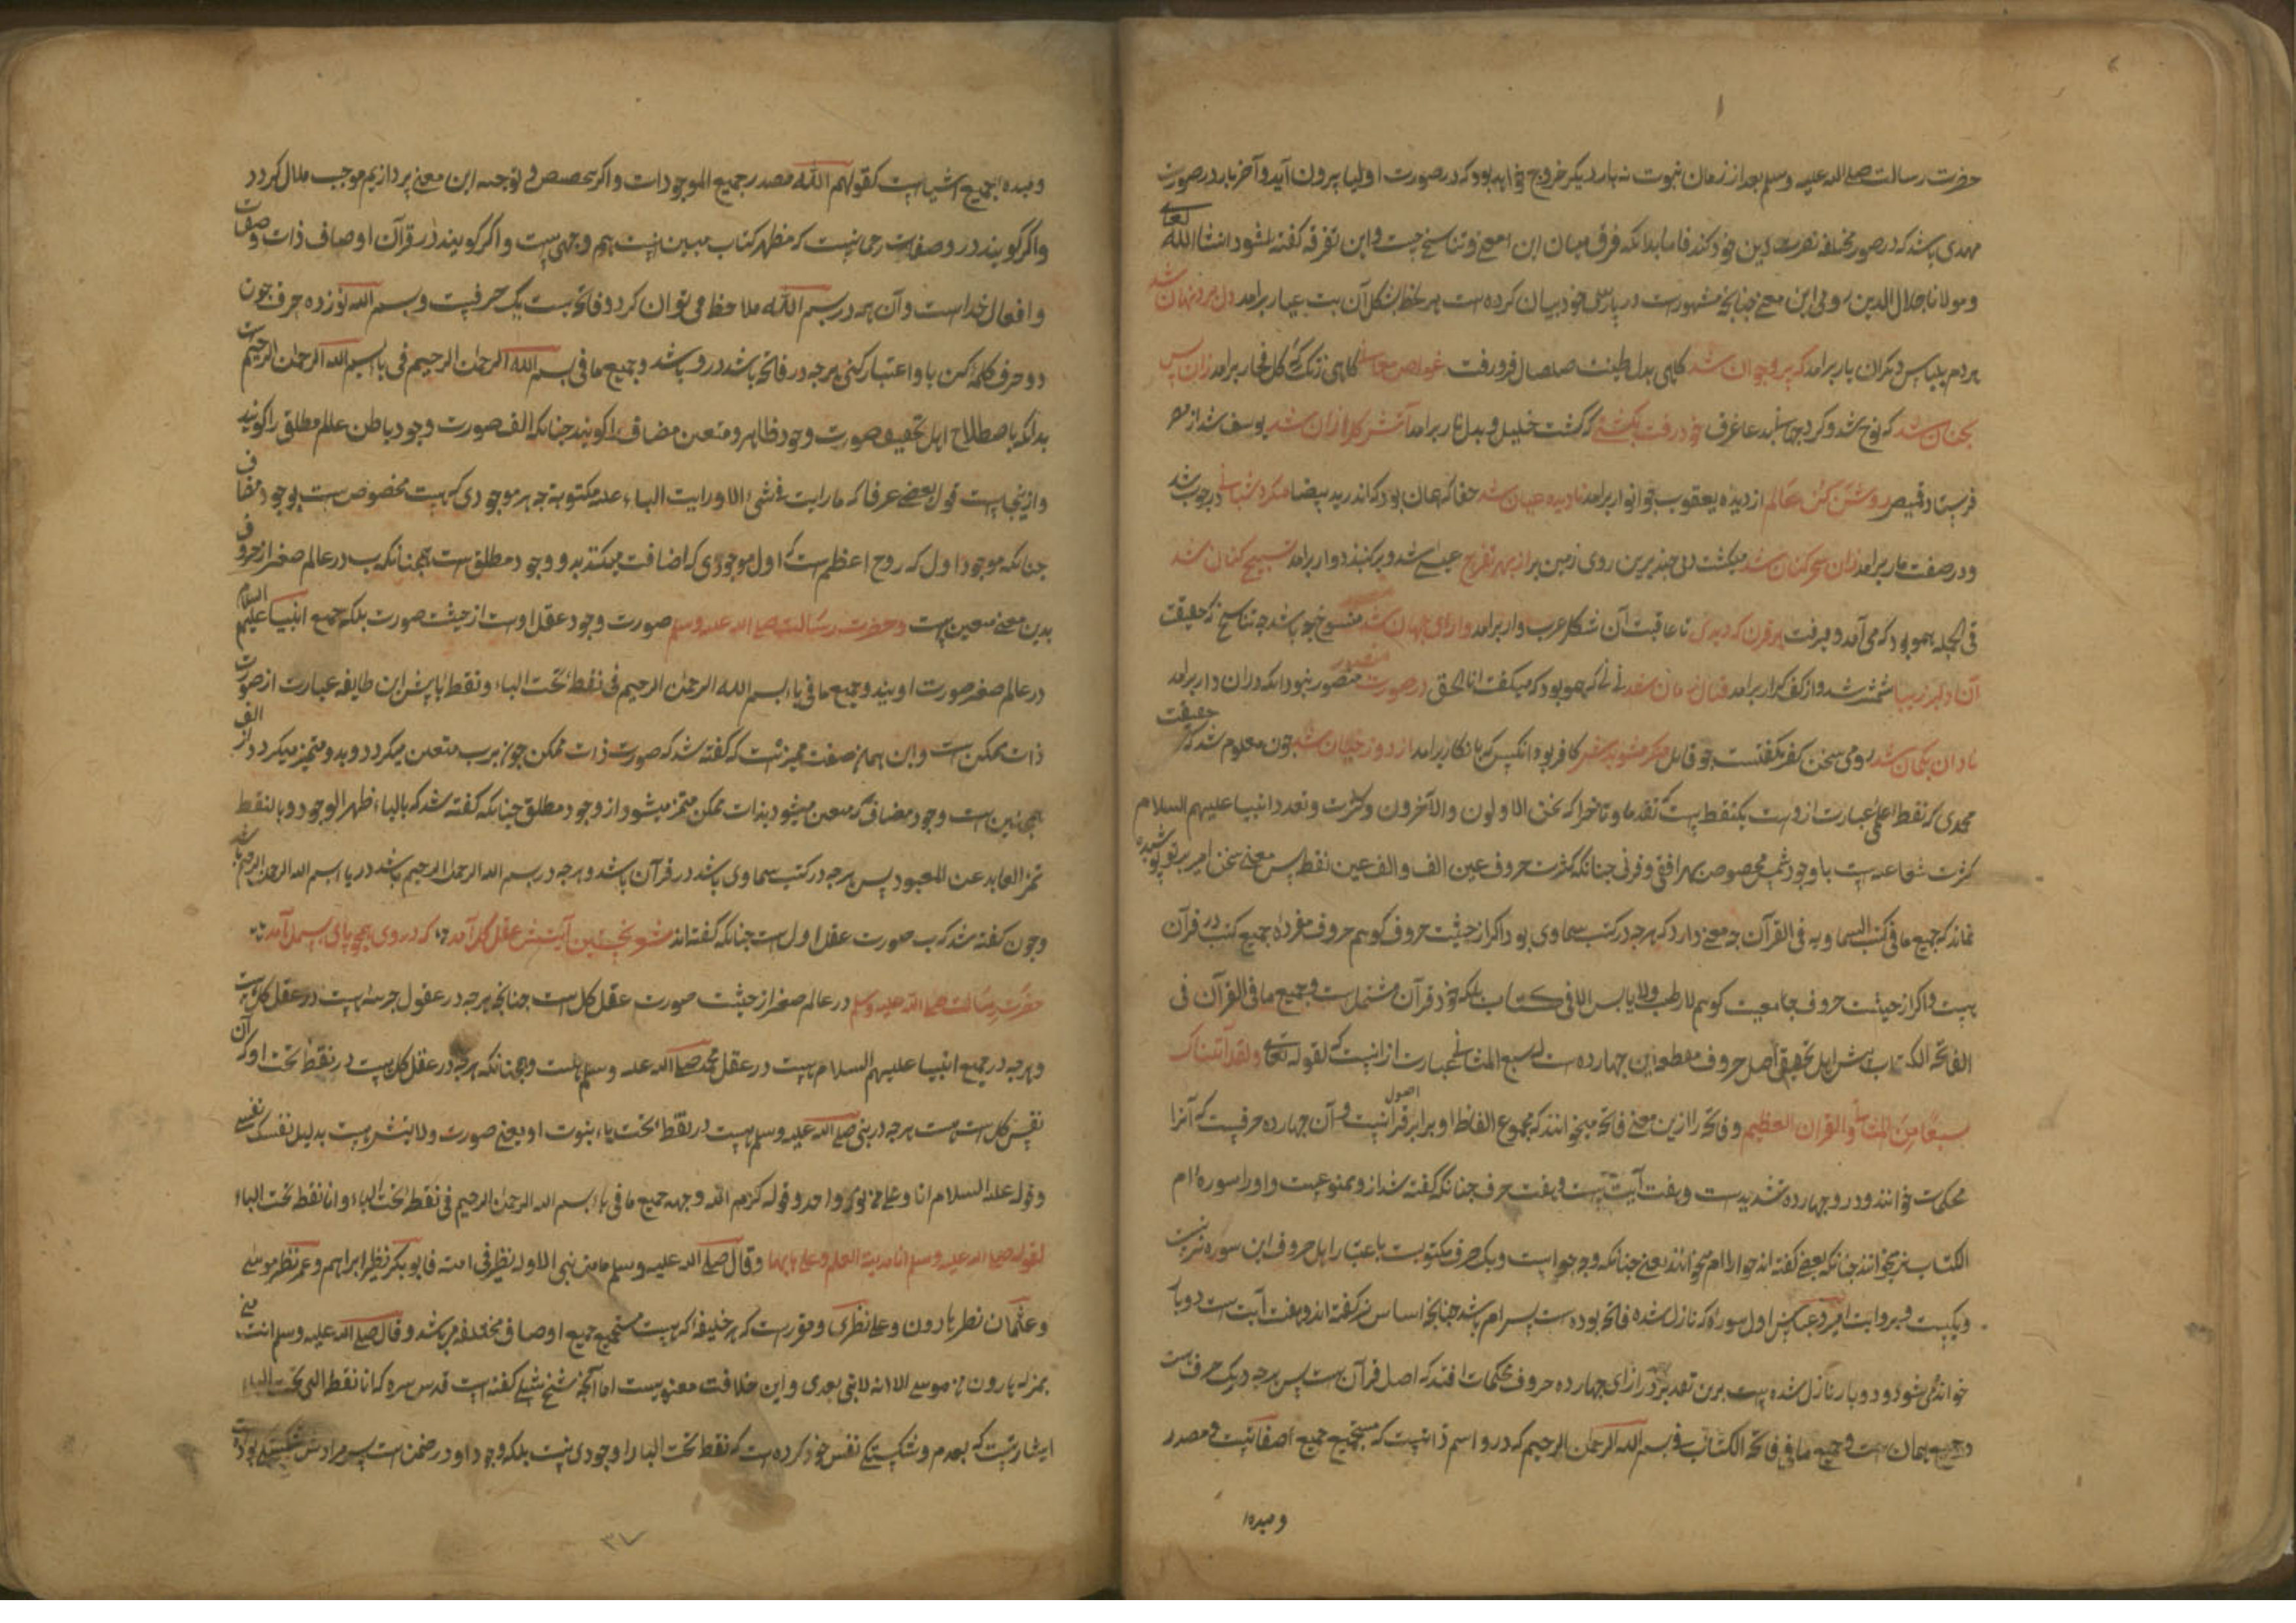 حضرت رسالت صلی الله علیه وسلم بعد از زمان نبوت نه بار دیگر خروج خواهد بود که در صورت اولیا بیرون آید و آخر بار در صورت
مهدی باشد که در صور مختلفه نصرت دین خود کند فاما بدانکه فرق میان این معنی و تناسخ چیست و این تفرقه گفته شود انشاالله تعالی
و مولانا جلال الدین رومی این معنی چنانچه مشهورست در پارسی خود بیان کرده است هر لحظه بشکل آن بت عیار برامد دل برد و نهان شد
هر دم بلباس دیگر آن یار برامد که پیر و جوان شد گاهی بدل طینت صلصال فرو رفت غواص معانی گاهی ز تک کل فخار برامد زان پس
بجنان شد که نوح شد و کرد جهانی بدعا غرق خود رفت بکشتی که گشت خلیل و بدل نار برامد آتش گل از آن شد یوسف شد از مصر
فرستاد قمیص روشن کن عالم از دیده یعقوب چو انوار برامد نادیده عیان شد حقا که همان بود که اندر ید بیضا میکرد شبانی در چوب شد
و در صفت مار برامد زان سحر کنان شد میگشت دمی چند برین روی زمین بر از بهر تفرج عیسی شد و بر گنبد دوار برامد تسبیح کنان شد
فی الجمله همو بود که می آمد و میرفت هر قرن که دیدی تا عاقبت آن شکل عرب وار برامد دارای جهان شد منسوخ چه باشد چه تناسخ ز حقیقت
آن دلبر زیبا شمشیر شد و از کف کرار برامد قتال زمان شد نی نی که همو بود که میگفت انا الحق در صورت منصور منصور نبود آنکه در آن دار برامد
نادان بگمان شد رومی سخن کفر نگفتست چو قایل منکر مشویدش کافر بود آنکس که بانکار برامد از دوزخیان شد چون معلوم شد که حقیقت
محمدی که نقطه علمی عبارت از وست یکنقطه است که تقدم و تاخر را که نحن الاولون والآخرون و کثرت و تعدد انبیا علیهم السلام
کثرت شعاعه است با وجود شمس مخصوص بهر افقی و قرنی چنانکه کثرت حروف عین الف و الف عین نقطه پس معنی سخن امیر بر تو پوشیده
نماند که جمیع ما فی کتب السماویه فی القرآن چه معنی دارد که هر چه در کتب سماوی بود اگر از حیثیت حروف گویم حروف مفرده جمیع کتب در قرآن
هست و اگر از حیثیت حروف جامعیت گویم لا رطب ولا یابس الا فی کتاب بلکه خود قرآن مشتمل است و جمیع ما فی القرآن فی
الفاتحة الکتاب پیش اهل تحقیق اصل حروف مقطعه این چهارده است که سبع المثانی عبارت از انست که لقوله تعالی ولقد آتیناک
سبعا من المثانی والقران العظیم و فاتحه را ازین معنی فاتحه میخوانند که مجموع الفاظ او برابر اصول قرآنیست و آن چهارده حرفیست که آنرا
محکمات خوانند و در و چهارده تشدیدست و هفت آیت است و هفت حرف چنانکه گفته شد از و ممنوعست و او را سوره ام
الکتاب نیز میخوانند چنانکه بعضی گفته اند حوا را ام میخوانند یعنی چنانکه وجه حوا است و یک حرف مکتوبست باعتبار اهل حروف این سوره نیز بیست
و یکیست و بروایت امیر و عباس اول سوره که نازل شده فاتحه بوده است پس ام باشد چنانچه اساس نیز گفته اند و هفت آیت است دو بار
خوانده می شود و دو بار نازل شده است برین تقدیر در ازای چهارده حروف محکمات افتد که اصل قرآن هست پس هر چه در یک حرف است
در جمیع همان است و جمیع ما فی فاتحة الکتاب فی بسم الله الرحمن الرحیم که در و اسم ذاتیست که مستجمع جمیع صفاتیست و مصدر
و مبدء
و مبدء جمیع اشیاست کقولهم الله مصدر جمیع الموجودات و اگر بتخصیص در توجیه این معنی پردازیم موجب ملال گردد
و اگر گویند در و صفات رحمانیست که مظهر کتاب مبین است هم وجهی است و اگر گویند در قرآن اوصاف ذات و صفات
و افعال خداست و آن همه در بسم الله ملاحظه می توان کرد و فاتحه بیست یک حرفیست و بسم الله نوزده حرف چون
دو حرف کلمه کن با و اعتبار کنی هر چه در فاتحه باشد در و باشد و جمیع ما فی بسم الله الرحمن الرحیم فی باء بسم الله الرحمن الرحیم است
بدانکه باصطلاح اهل تحقیق صورت وجود ظاهر و متعین مضاف را گویند چنانکه الف صورت وجود باطن عالم مطلق را گویند
و ازینجاست قول بعضی عرفا که ما رایت فی شیء الا و رایت الباء علیه مکتوبة چه هر موجودی که هست مخصوص است بوجود مضاف
چنانکه موجود اول که روح اعظم است که اول موجودی که اضافت میکند بدو وجود مطلق است همچنانکه ب در عالم صغر از حروف
بدین معنی متعین است و حضرت رسالت صلی الله علیه وسلم صورت وجود عقل اوست از حیثیت صورت بلکه جمیع انبیا علیهم السلام
در عالم صغر صورت اویند و جمیع ما فی باء بسم الله الرحمن الرحیم فی نقطة تحت الباء و نقطه با پیش این طایفه عبارت از صورت
ذات ممکن است و این همان صفت ممیز است که گفته شد که صورت ذات ممکن چو از ب متعین میگردد و بدو متمیز میگردد از الف
همچنین است وجود مضاف که متعین میشود بذات ممکن متمیز میشود از وجود مطلق چنانکه گفته شد که بالباء ظهر الوجود و بالنقطة
تمیز العابد عن المعبود پس هر چه در کتب سماوی باشد در قرآن باشد و هر چه در بسم الله الرحمن الرحیم باشد در باء بسم الله الرحمن الرحیم باشد
و چون گفته شد که ب صورت عقل اول است چنانکه گفته اند شو نخستین آیتش عقل کل آمد که در وی همچو بای بسمل آمد
حضرت رسالت صلی الله علیه وسلم در عالم صغر از حیثیت صورت عقل کل است چنانچه هر چه در عقول جزئیه است در عقل کل هست
و هر چه در جمیع انبیا علیهم السلام هست در عقل محمد صلی الله علیه وسلم هست و همچنانکه هر چه در عقل کل هست در نقطه تحت او که آن
نفس کل است هست هر چه در نبی صلی الله علیه وسلم هست در نقطه تحت باء نبوت او یعنی صورت ولایتش هست بدلیل نفسک نفسی
و قوله علیه السلام انا و علی من نور واحد و قوله کرم الله وجهه جمیع ما فی باء بسم الله الرحمن الرحیم فی نقطة تحت الباء و انا نقطة تحت الباء
لقوله صلی الله علیه وسلم انا مدینة العلم و علی بابها و قال صلی الله علیه وسلم ما من نبی الا وله نظیر فی امته فابوبکر نظیر ابراهیم و عمر نظیر موسی
و عثمان نظیر هارون و علی نظیری و مقررست که هر خلیفه که هست مستجمع جمیع اوصاف مخلفه می باشد و قال صلی الله علیه وسلم انت منی
بمنزلة هارون من موسی الا انه لا نبی بعدی و این خلافت معنویست اما آنچه شیخ شبلی گفته است قدس سره که انا نقطة التی تحت الباء
اشارتیست که بعدم و شکستگی نفس خود کرده است که نقطه تحت البا را وجودی نیست بلکه وجود او در ضمن است پس مرادش شکستگی بوده
۳۷